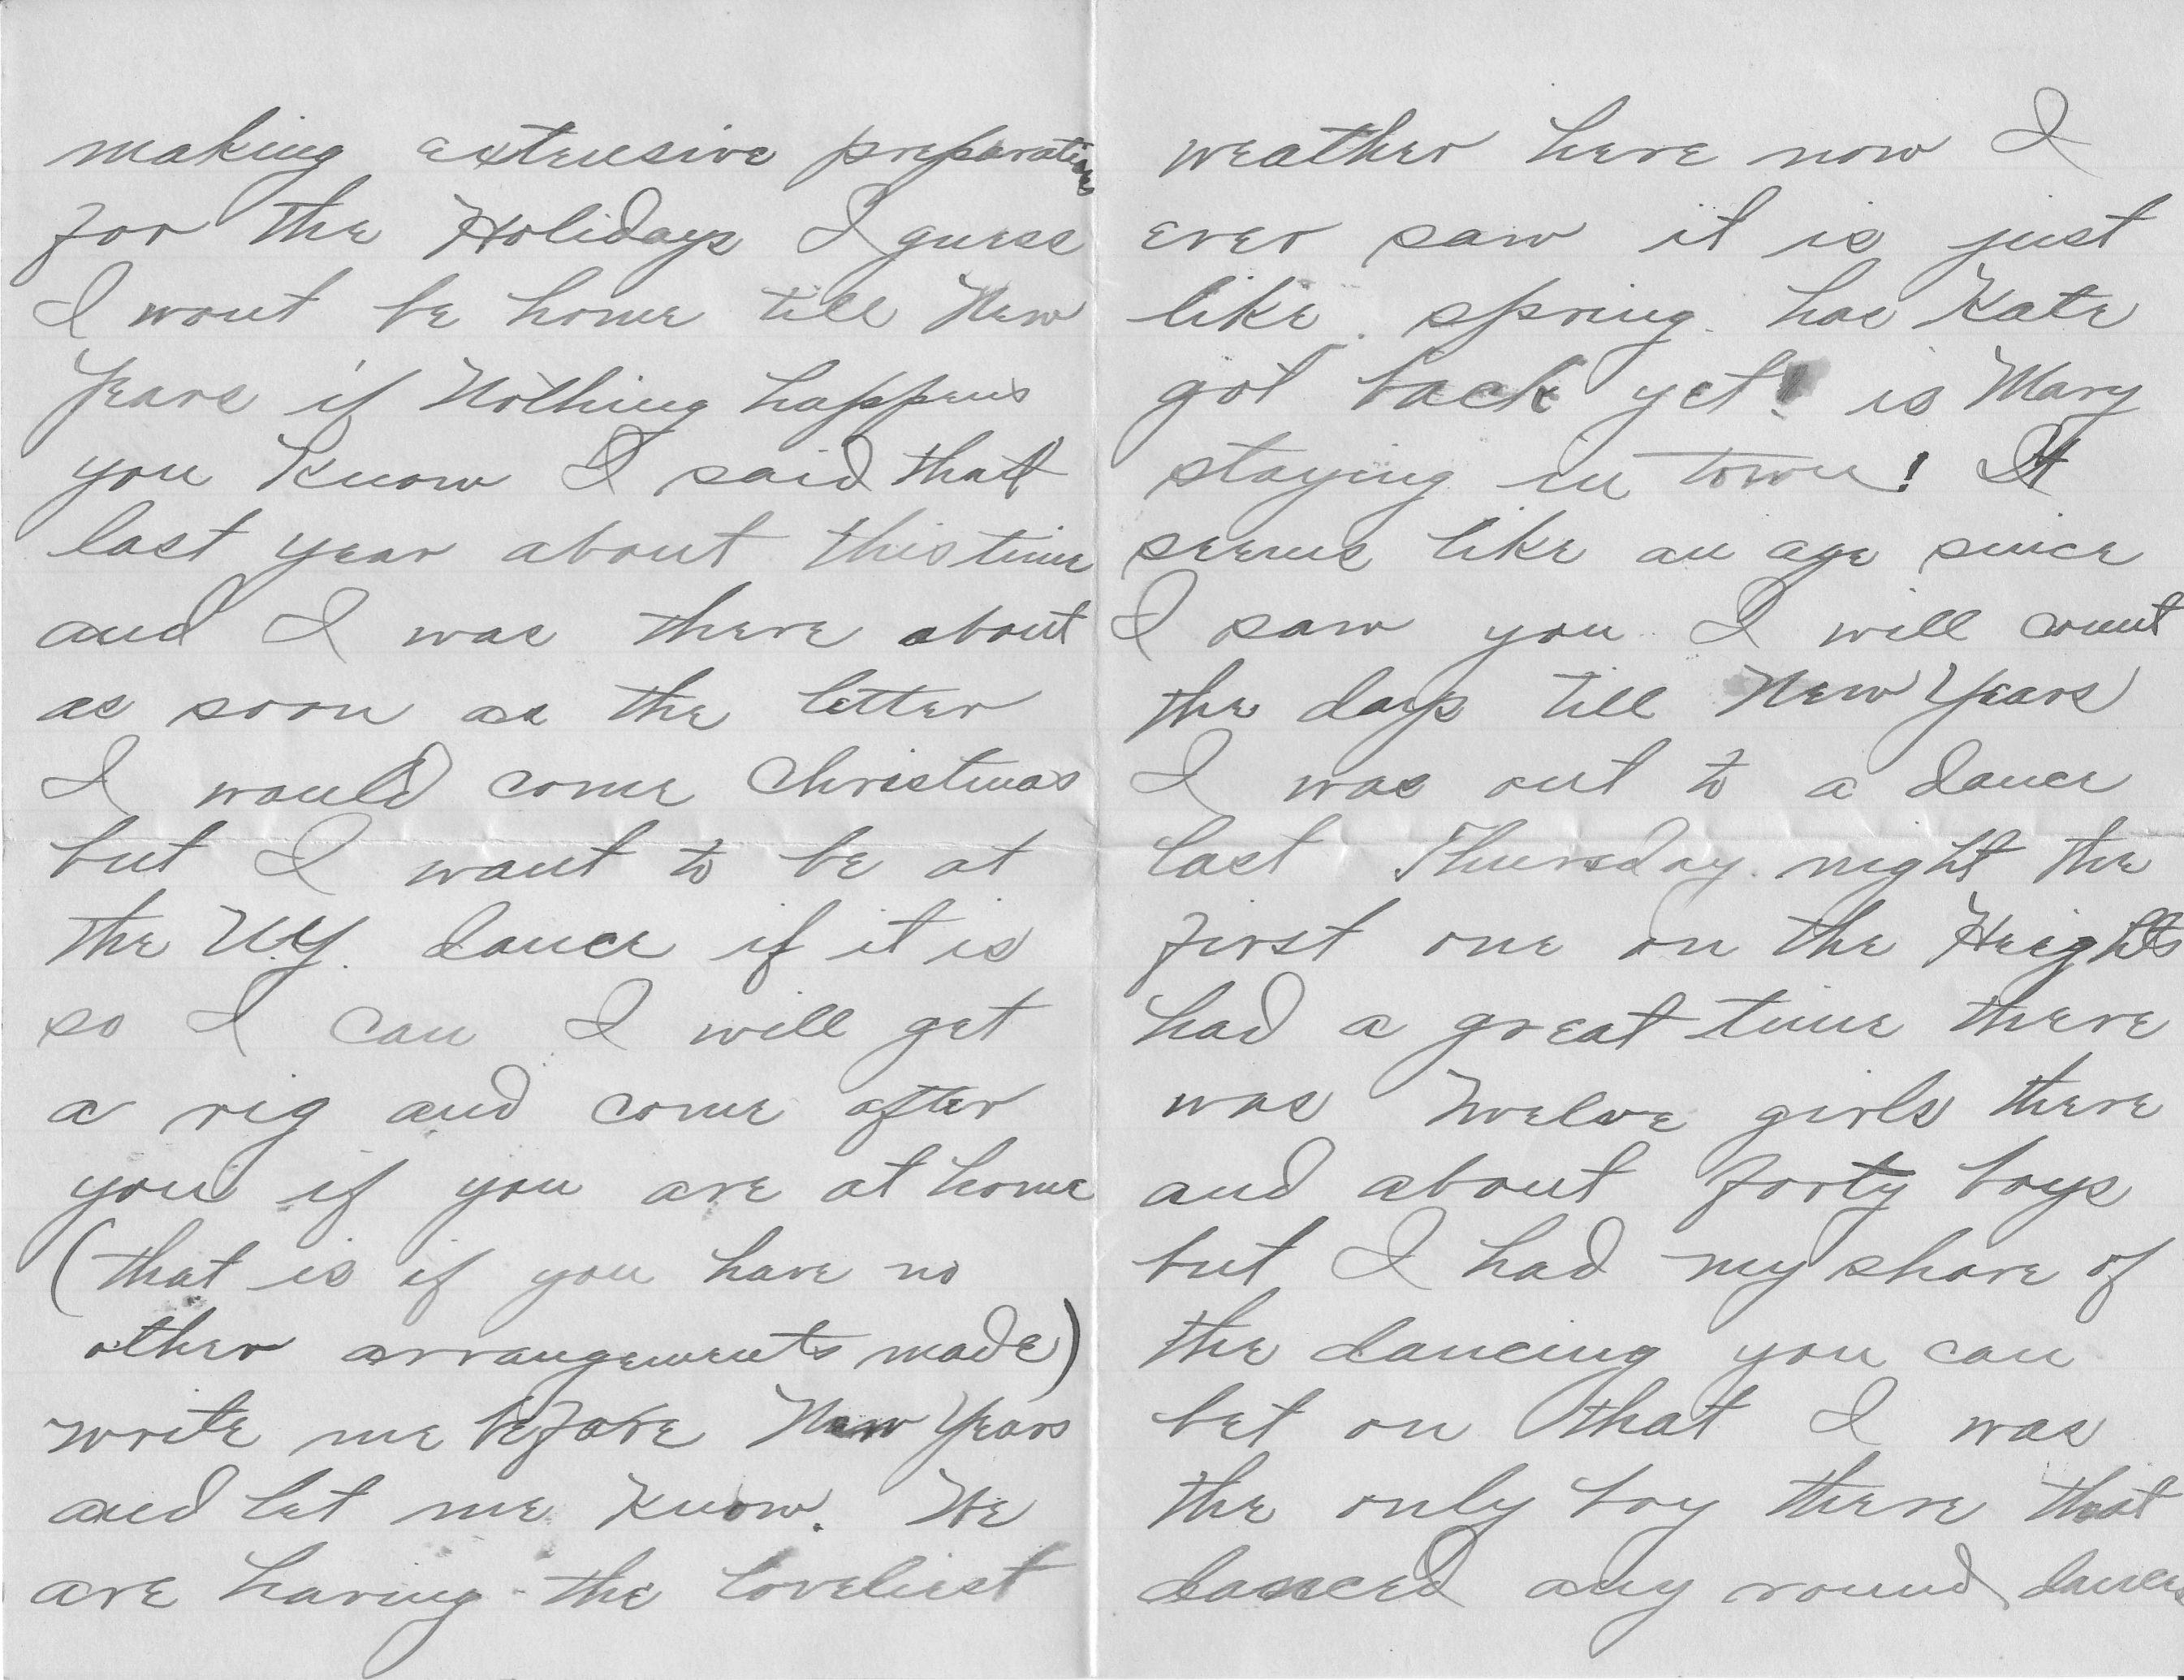 making extensive preparations
for the Holidays I guess
I wont be home till New
Years if Nothing happens
you know I said that
last year about this time
and I was there about
as soon as the letter
I would come Christmas
but I want to be at
the N.Y. dance if it is
so I can I will get
a rig and come after
you if you are at home
(that is if you have no
other arrangements made)
write me before New Years
and let me know. We
are having the loveliest
weather here now I
ever saw it is just
like spring. has Kate
got back yet! is Mary
staying in town! It
seems like an age since
I saw you. I will count
the days till New Years
I was out to a dance
last Thursday night the
first one on the Heights
had a great time there
was twelve girls there
and about forty boys
but I had my share of
the dancing you can
bet on that I was
the only boy there that
danced any round dances